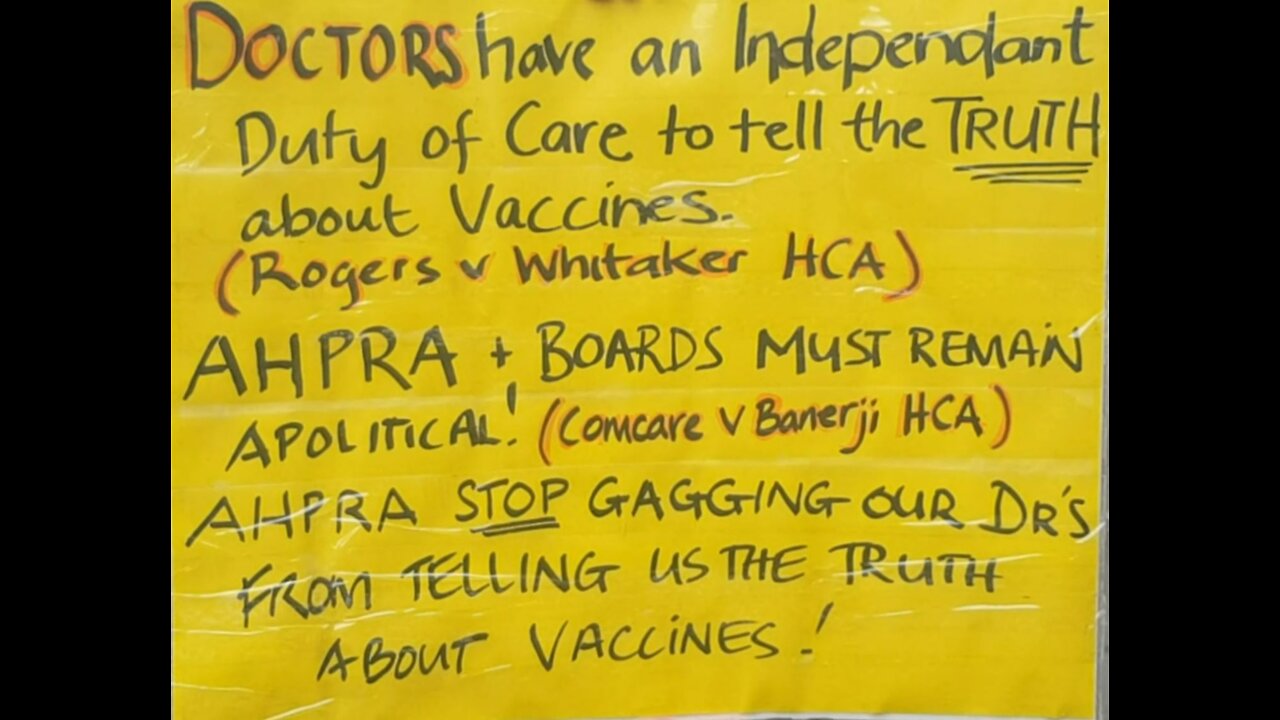 DOCTORS have an Independant
Duty of Care to tell the TRUTH
about Vaccines.
(Rogers v Whitaker HCA)
AHPRA + BOARDS MUST REMAIN
APOLITICAL! (Comcare v Banerji HCA)
AHPRA STOP GAGGING OUR DR'S
FROM TELLING US THE TRUTH
ABOUT VACCINES!